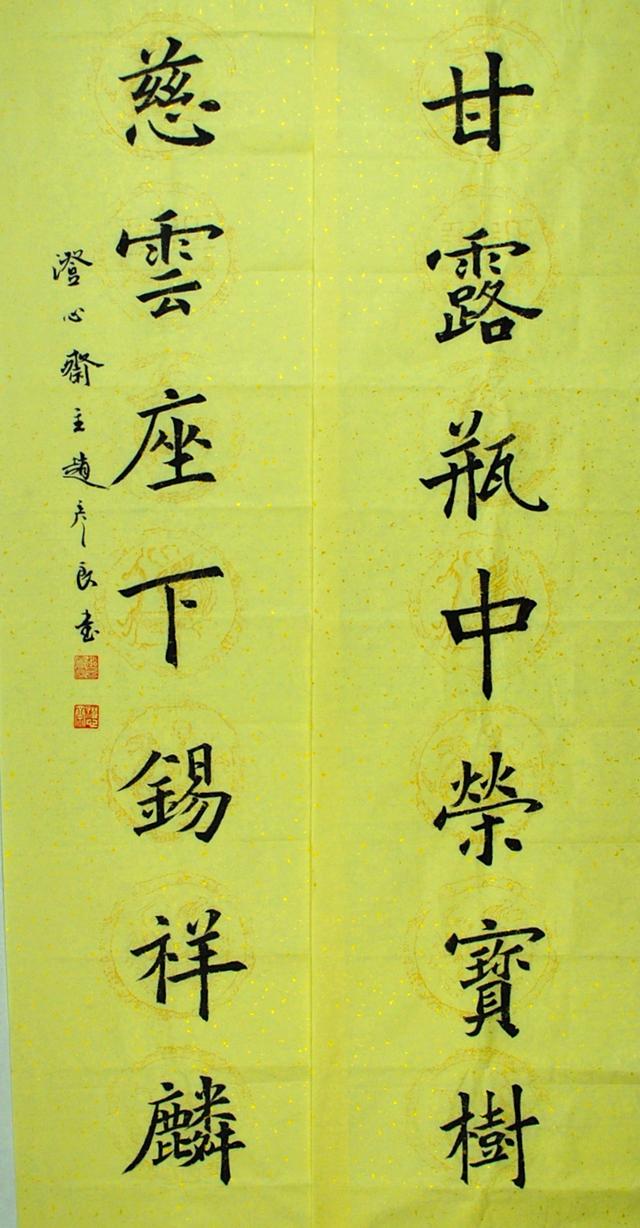 甘露瓶中榮寶樹
慈雲座下錫祥麟
澄心齋主趙彥良書